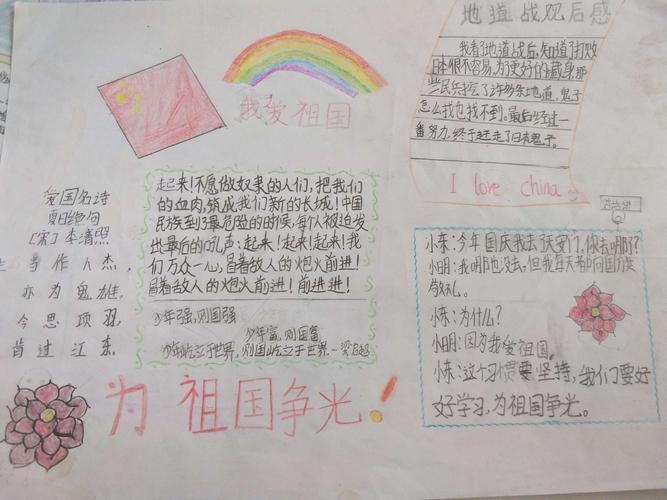 我爱祖国
地道战观后感
我看了地道战后,知道了打败
日本很不容易,为了更好的藏身,那
些民兵挖了许多条地道,鬼子
怎么找也找不到。最后经过一
番努力,终于赶走了日本鬼子。
I love china
爱国名诗
夏日绝句
[宋]李清照
生当作人杰,
亦为鬼雄。
今思项羽,
肯过江东。
起来!不愿做奴隶的人们,把我们
的血肉,筑成我们新的长城!中国
民族到了最危险的时候,每个人被迫发
出最后的吼声:起来!起来!起来!我
们万众一心,冒着敌人的炮火前进!
冒着敌人的炮火前进!前进进!
少年强,则国强
少年富,则国富
少年屹立于世界,则国屹立于世界.-梁启超
小东:今年国庆我去天安门,你去哪了?
小明:我哪也没去,但我每天都向国旗
敬礼。
小东:为什么?
小明:因为我爱祖国,
小东:这个习惯要坚持,我们要好
好学习,为祖国争光。
为祖国争光!